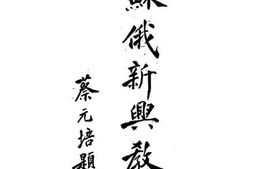 蘇俄新興教
蔡元培題